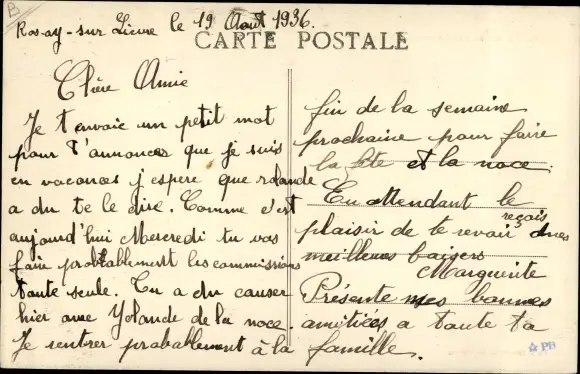 Rosay-sur Lieure le 19 Août 1936.
CARTE POSTALE
Chère Amie
Je t'envoie un petit mot
pour t'annoncer que je suis
en vacances j'espere que Yolande
a du te le dire. Comme c'est
aujourd'hui Mercredi tu vas
faire probablement les commissions
toute seule. Tu a du causer
hier avec Yolande de la noce.
Je rentrer probablement à la
fin de la semaine
prochaine pour faire
la fête et la noce.
En Attendant le
plaisir de te revoir reçois mes
meilleures baisers
Marguerite
Présente mes bonnes
amitiées a toute ta
famille.
PB